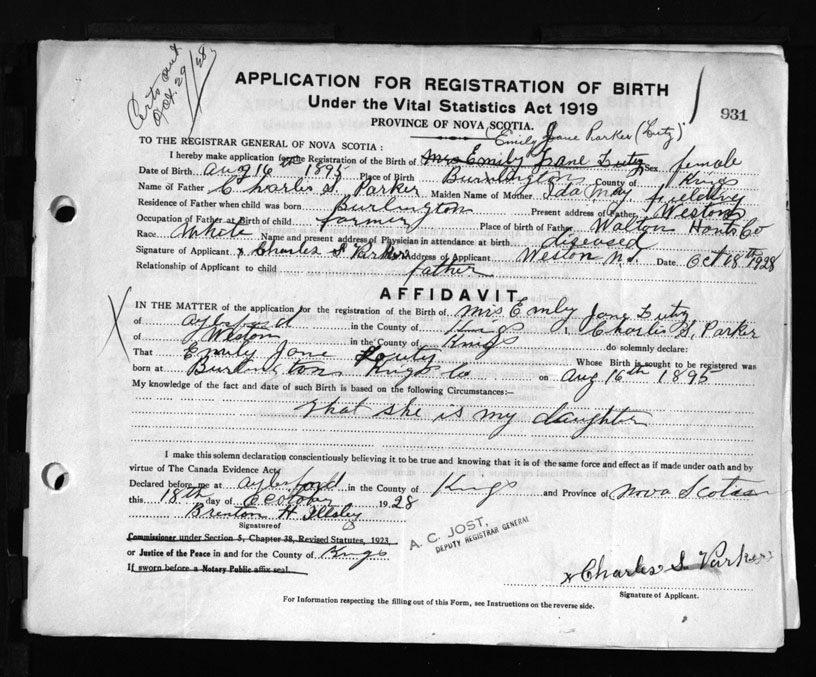 Certs out
Oct. 29/28
APPLICATION FOR REGISTRATION OF BIRTH
Under the Vital Statistics Act 1919
931
PROVINCE OF NOVA SCOTIA.
Emily Jane Parker (Lutz)
TO THE REGISTRAR GENERAL OF NOVA SCOTIA:
I hereby make application for the Registration of the Birth of Mrs Emily Jane Lutz Sex female
Date of Birth Aug 16th 1895 Place of Birth Burlington County of Kings
Name of Father Charles S. Parker Maiden Name of Mother Ida May
Residence of Father when child was born Burlington Present address of Father Weston
Occupation of Father at Birth of child farmer Place of birth of Father Walton Hants Co
Race White Name and present address of Physician in attendance at birth diseased
Signature of Applicant x Charles S Parker Address of Applicant Weston N.S. Date Oct 18th 1928
Relationship of Applicant to child father
AFFIDAVIT
IN THE MATTER of the application for the registration of the Birth of Mrs Emily Jane Lutz
of Aylesford in the County of Kings I, Charles S. Parker
of Weston in the County of Kings do solemnly declare:
That Emily Jane Loutz Whose Birth is sought to be registered was
born at Burlington Kings Co on Aug 16th 1895
My knowledge of the fact and date of such Birth is based on the following Circumstances:—
that she is my daughter
I make this solemn declaration conscientiously believing it to be true and knowing that it is of the same force and effect as if made under oath and by
virtue of The Canada Evidence Act.
Declared before me at Aylesford in the County of Kings and Province of Nova Scotia
this 18th day of October 1928
Brenton H. Illsley
Signature of
Commissioner under Section 5, Chapter 38, Revised Statutes, 1923
or Justice of the Peace in and for the County of Kings
If sworn before a Notary Public affix seal.
A. C. JOST,
DEPUTY REGISTRAR GENERAL
x Charles S. Parker
Signature of Applicant.
For Information respecting the filling out of this Form, see Instructions on the reverse side.